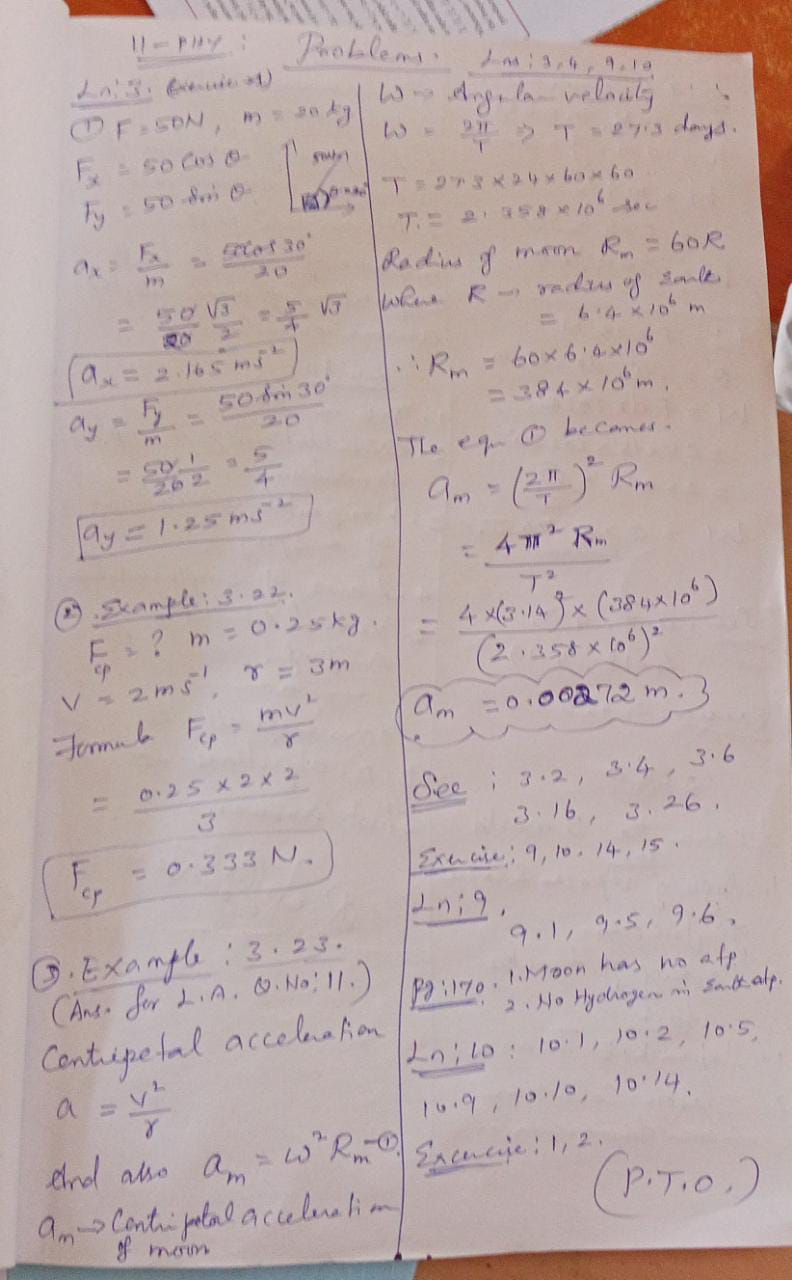 11-PHY : Problems. Lns: 3,4,9,10
Ln: 3.
① F = 50N, m = 20 kg
Fx = 50 Cos θ
Fy = 50 Sin θ
ax = Fx/m = 50Cos 30°/20
= 50/20 √3/2 = 5/4 √3
ax = 2.165 ms⁻²
ay = Fy/m = 50 Sin 30°/20
= 50/20 1/2 = 5/4
ay = 1.25 ms⁻²
② Example: 3.22.
Fcp = ? m = 0.25 kg.
V = 2 ms⁻¹, r = 3m
Formula Fcp = mv²/r
= 0.25 × 2 × 2/3
Fcp = 0.333 N.
③. Example : 3.23.
(Ans. for L.A. Q.No: 11.)
Centripetal acceleration
a = v²/r
And also am = ω² Rm –①
am → Centripetal acceleration
of moon
ω → Angular velocity
ω = 2π/T ⇒ T = 27.3 days.
T = 27.3 × 24 × 60 × 60
T = 2.358 × 10⁶ sec
Radius of moon Rm = 60R
Where R → radius of Earth
= 6.4 × 10⁶ m
∴ Rm = 60 × 6.4 × 10⁶
= 384 × 10⁶ m.
The equ ① becomes.
am = (2π/T)² Rm
= 4π² Rm/T²
= 4 × (3.14)² × (384 × 10⁶)/(2.358 × 10⁶)²
am = 0.00272 m.
See : 3.2, 3.4, 3.6
3.16, 3.26.
Exercise: 9, 10. 14, 15.
Ln: 9.
9.1, 9.5, 9.6,
Pg: 170. 1. Moon has no atp
2. No Hydrogen in Earth atp.
Ln: 10 : 10.1, 10.2, 10.5,
10.9, 10.10, 10.14.
Excercise: 1, 2.
(P.T.O.)